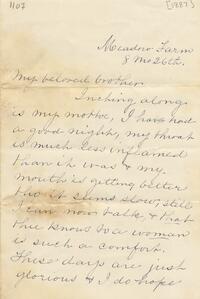 1107
[1887]
Meadow Farm
8 Mo 26th.
My beloved brother
Inching along
is my motive, I have had
a good night, my throat
is much less inflamed
than it was & my
mouth is getting better
tho it seems slow, still
I can now talk, & that
thee knows to a woman
is such a comfort.
These days are just
glorious & I do hope